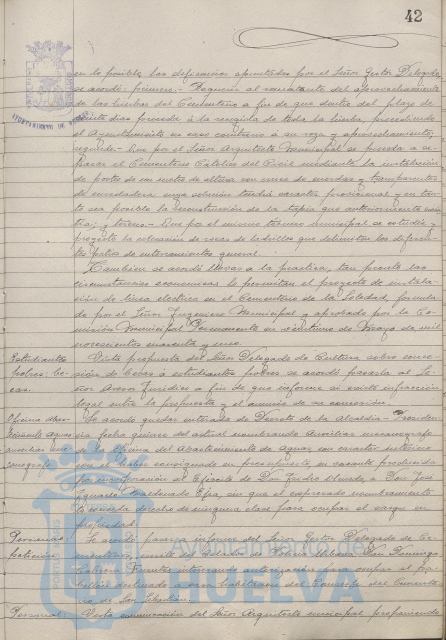 42
en lo posible las deficiencias apuntadas por el Señor Gestor Delegado
se acordó: primero.- Requerir al del aprovechamiento
de las hierbas del Cementerio a fin de que dentro del plazo de
días proceda a la recogida de toda la hierba, procediendo
el Ayuntamiento en caso contrario a su y aprovechamiento;
segundo.- Que por el Señor Arquitecto Municipal se proceda a se-
parar el Cementerio Católico del Civil mediante la instalación
de postes de un metro de altura con unos de y
de enredadera cuya solución tendrá carácter provisional y en tan-
to sea posible la reconstrucción de la tapia que anteriormente exis-
tía; y tercero.- Que por el mismo técnico municipal se estudie y
proyecte la colocación de de ladrillos que delimiten los diferen-
tes patios de enterramientos general.
También se acordó llevar a la práctica, tan pronto las
circunstancias económicas lo permitan el proyecto de instala-
ción de línea eléctrica en el Cementerio de la Soledad, formula-
do por el Señor Ingeniero Municipal y aprobado por la Co-
misión Municipal Permanente en veintiuno de Mayo de mil
novecientos cuarenta y uno.
Estudiantes
pobres: be-
cas.
Vista propuesta del Señor Delegado de Cultura sobre conce-
sión de becas a estudiantes pobres se acordó pasarla al Se-
ñor Asesor Jurídico a fin de que informe si existe infracción
legal entre la propuesta y el anuncio de su concesión.
Oficina Abas-
tecimiento Aguas
auxiliar meca-
nógrafo
Se acordó quedar enterada de Decreto de la Alcaldía-Presiden-
cia, fecha quince del actual nombrando Auxiliar mecanógrafo
de la Oficina del Abastecimiento de Aguas, con carácter interino
con el haber consignado en presupuesto, en vacante producida
por incorporación al Ejército de Don a Don José
Izquierdo Maldonado sin que el expresado nombramiento
le conceda derecho de ninguna clase para ocupar el cargo en
propiedad.
Personal:
petición.
Se acordó pasar a informe del Señor Gestor Delegado de Ce-
menterios, escrito del Don Domingo
interesando autorización para ocupar el pa-
bellón destinado a casa habitación del Conserje del Cemente-
rio de San Sebastián.
Personal:
Vista comunicación del Señor Arquitecto municipal proponiendo
Ayuntamiento de
HUELVA